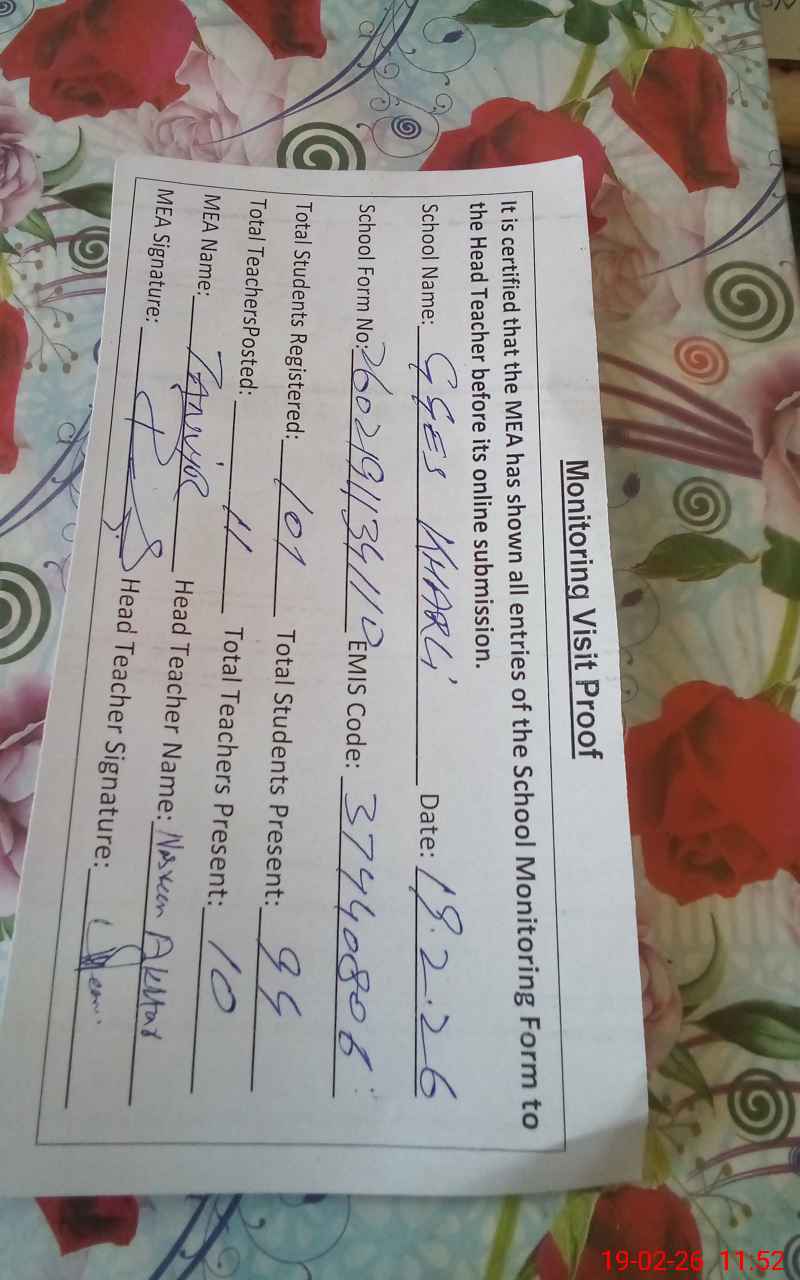 Monitoring Visit Proof
It is certified that the MEA has shown all entries of the School Monitoring Form to
the Head Teacher before its online submission.
School Name: GGES KHARLI Date: 19.2.26
School Form No: 2602191134110 EMIS Code: 37440806
Total Students Registered: 101 Total Students Present: 95
Total TeachersPosted: 11 Total Teachers Present: 10
MEA Name: Head Teacher Name: Nasreen Akhtar
MEA Signature: Head Teacher Signature:
19-02-26 11:52